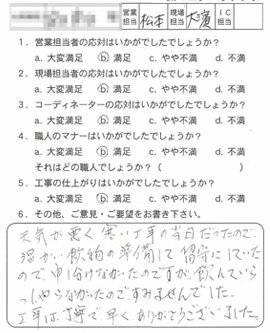 営業担当 松本 現場担当 大濱 IC担当
1. 営業担当者の応対はいかがでしたでしょうか?
a. 大変満足 b. 満足 c. やや不満 d. 不満
2. 現場担当者の応対はいかがでしたでしょうか?
a. 大変満足 b. 満足 c. やや不満 d. 不満
3. コーディネーターの応対はいかがでしたでしょうか?
a. 大変満足 b. 満足 c. やや不満 d. 不満
4. 職人のマナーはいかがでしたでしょうか?
a. 大変満足 b. 満足 c. やや不満 d. 不満
それはどの職人でしょうか?( )
5. 工事の仕上がりはいかがでしたでしょうか?
a. 大変満足 b. 満足 c. やや不満 d. 不満
6. その他、ご意見・ご要望をお書き下さい。
天気が悪く寒い工事の当日だったので、
温かい飲物の準備して留守にしていた
ので申し訳なかったのですが、飲んでいら
っしゃらなかったのですみませんでした。
工事は丁寧で早くありがとうございました。